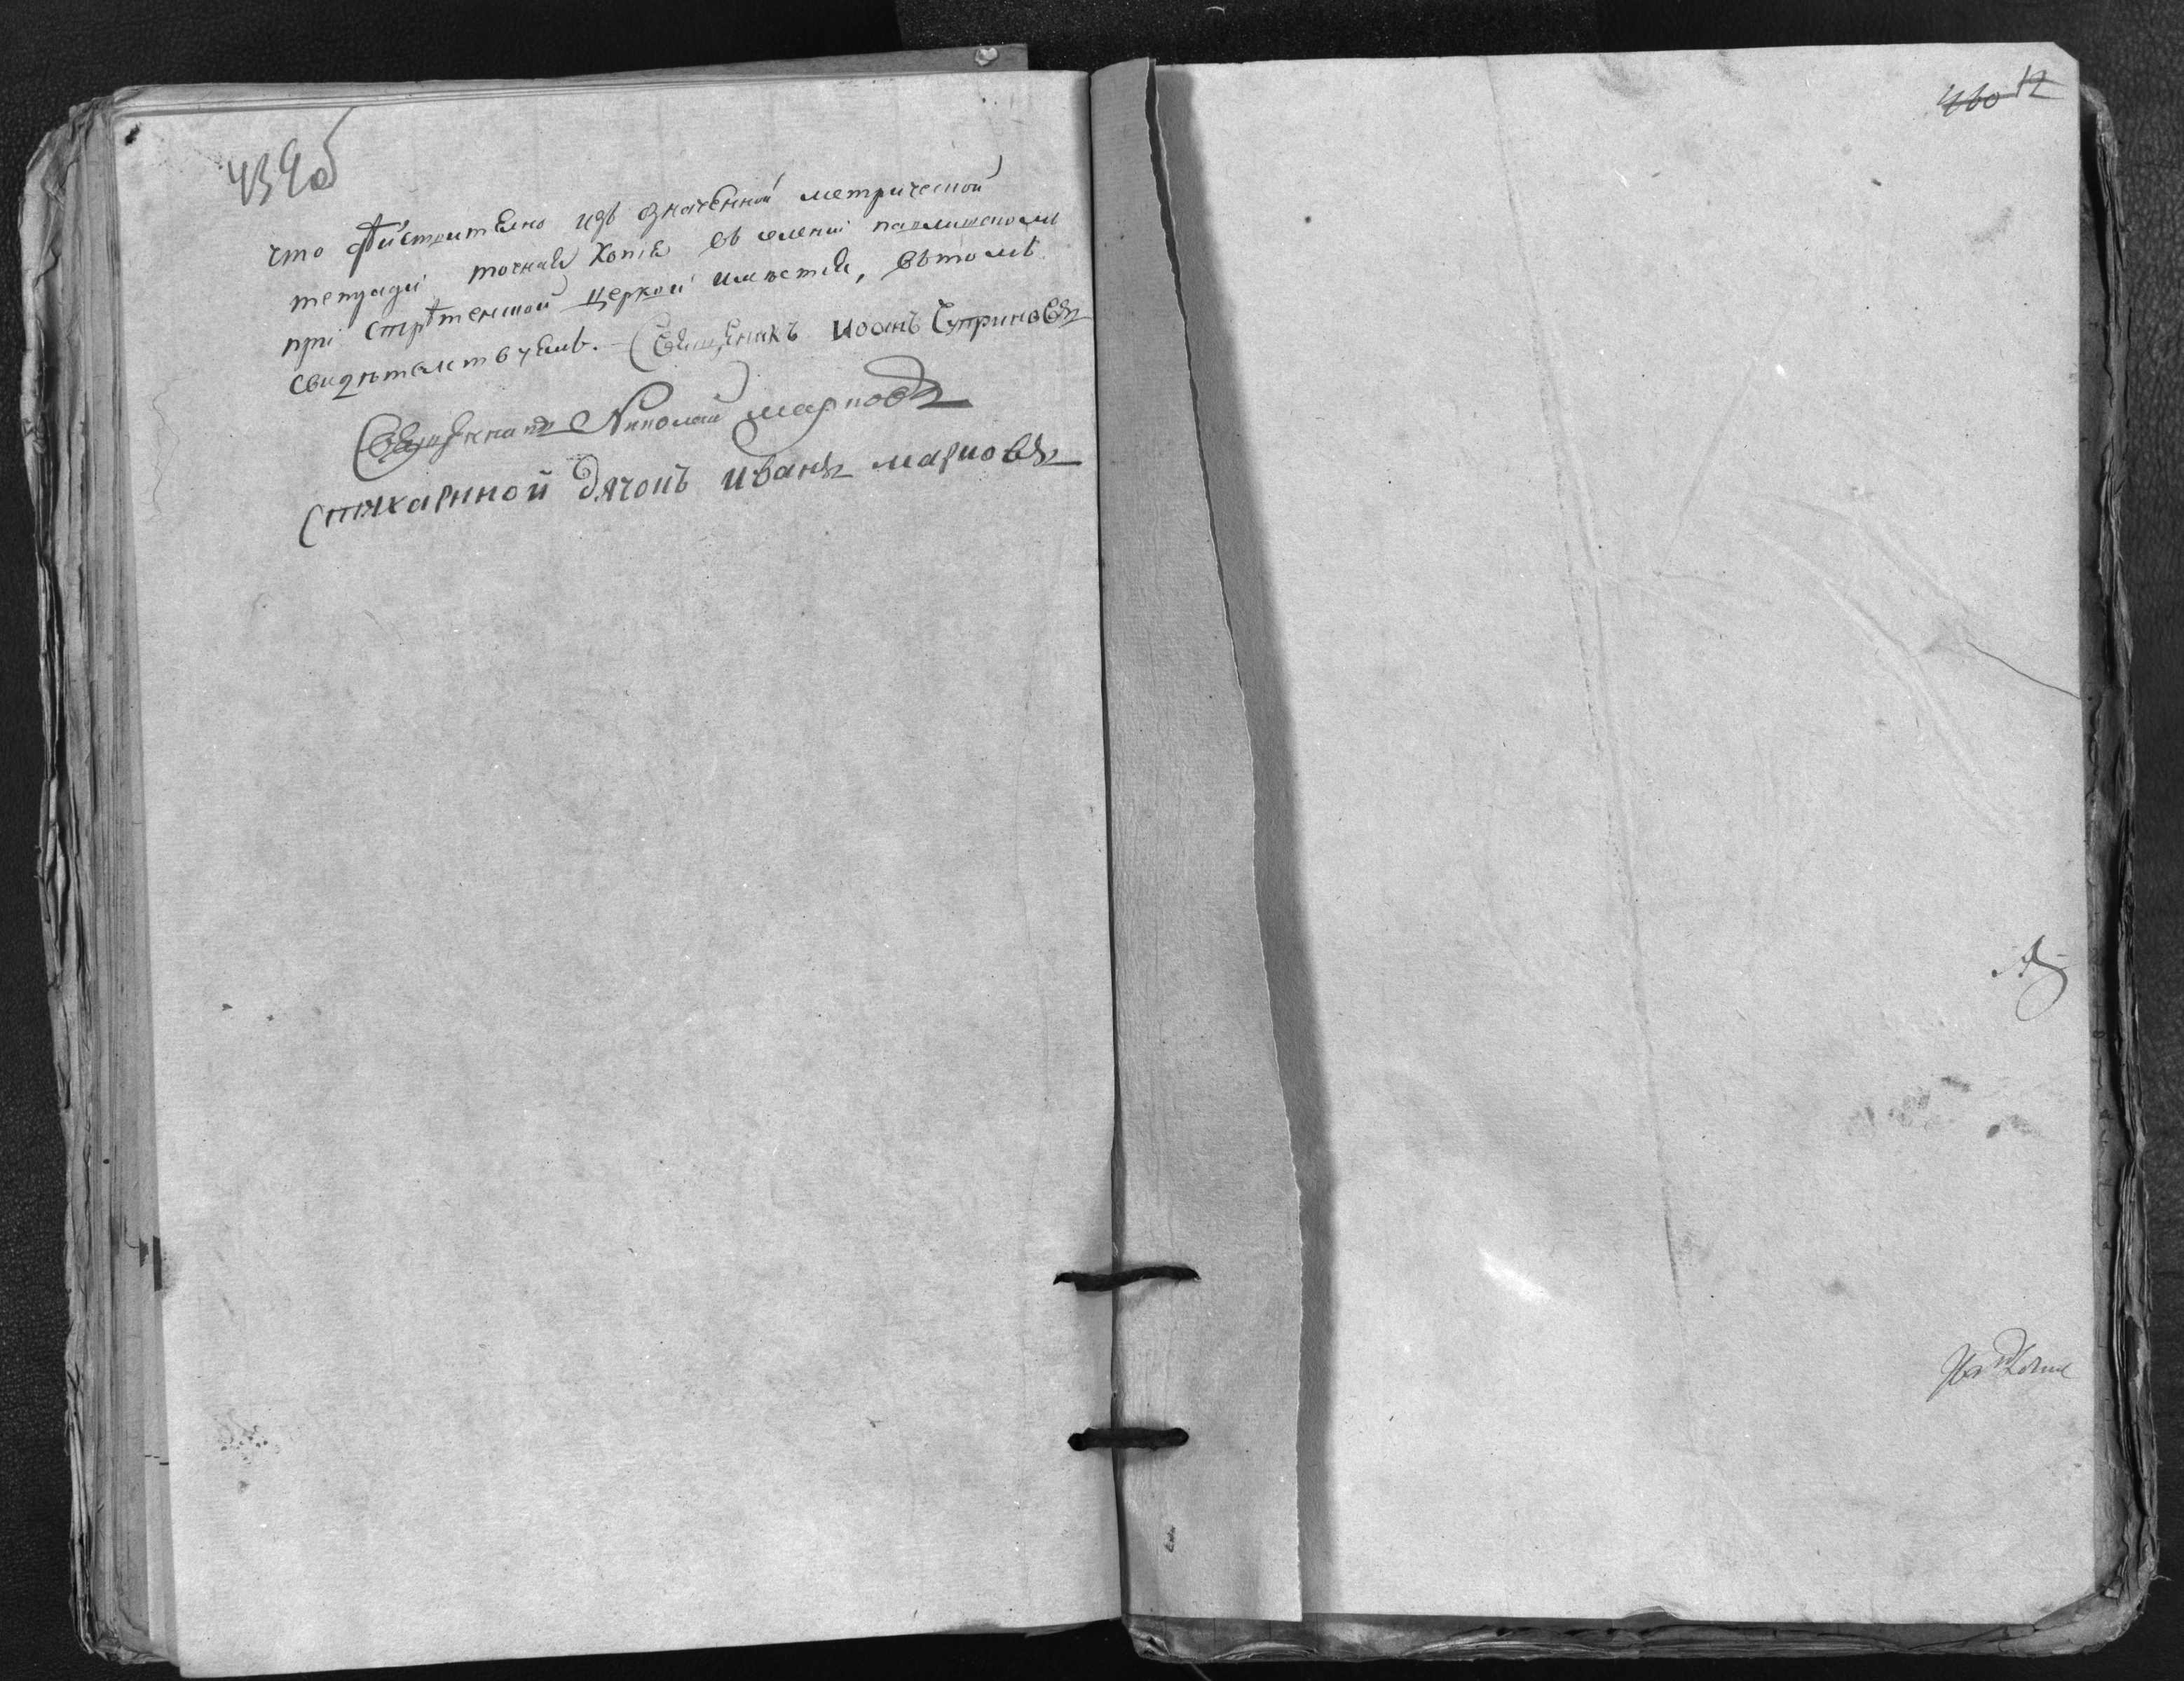 439об
что дѣйствително изъ означенной метрической
тетради точная копія въ селеніи павлишскомъ
прі стрѣтенской церкви имѣется, въ томъ
свидѣтелствуемъ. Священикъ Иоанъ Суприновъ
Священникъ Николай марковъ
Стихарнной дячокъ иванъ марковъ
460 12